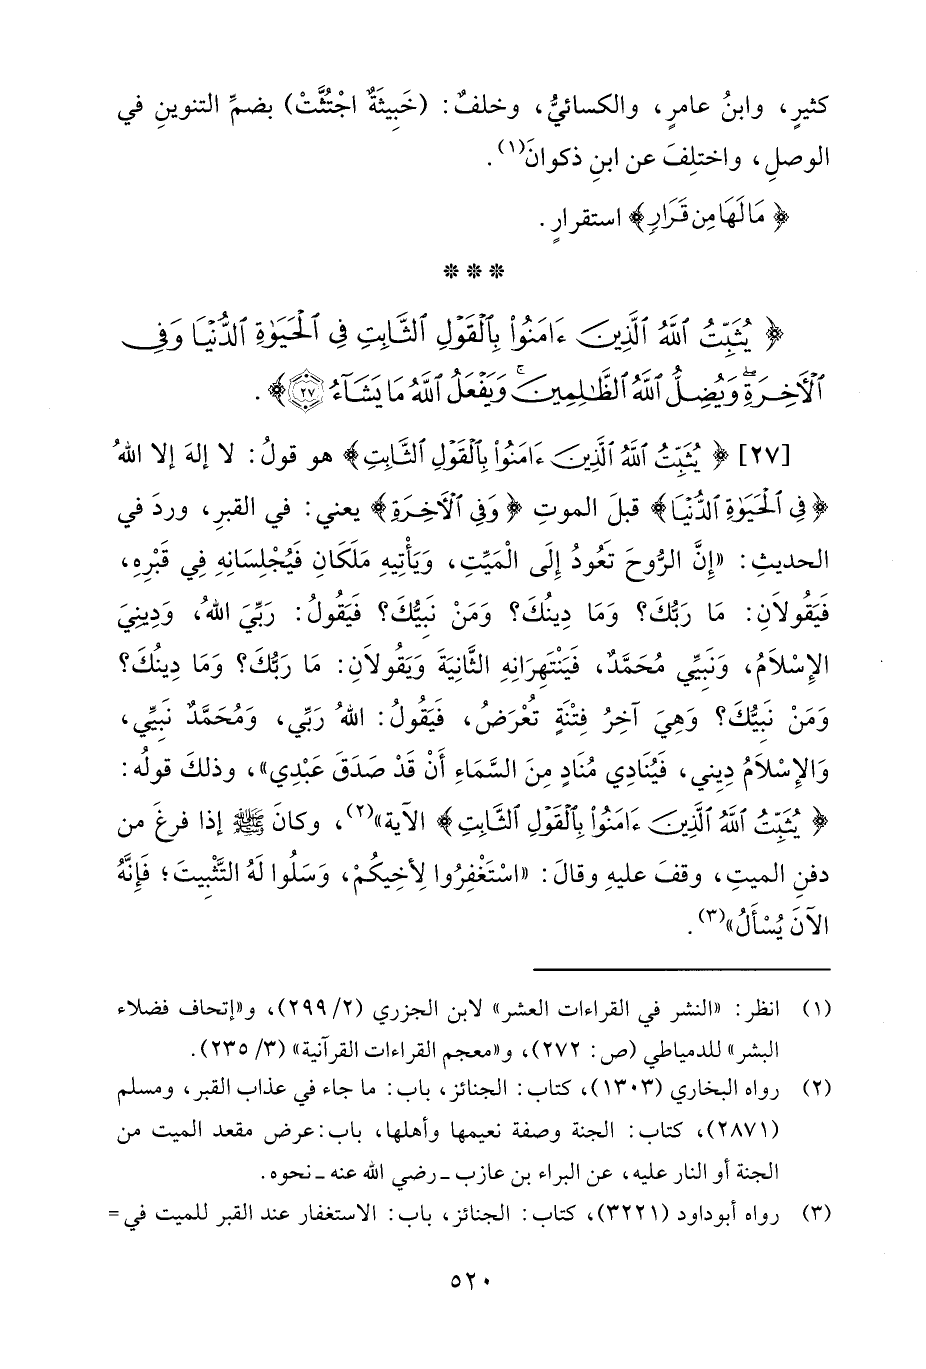 كثيرٍ، وابنُ عامرٍ، والكسائيُّ، وخلفٌ: (خَبِيثَةٌ اجْتُثَّتْ) بضمِّ التنوينِ في
الوصلِ، واختلِفَ عن ابنِ ذكوانَ(١).
﴿مَا لَهَا مِن قَرَارٍ﴾ استقرارٍ.
***
﴿يُثَبِّتُ ٱللَّهُ ٱلَّذِينَ ءَامَنُوا۟ بِٱلْقَوْلِ ٱلثَّابِتِ فِى ٱلْحَيَوٰةِ ٱلدُّنْيَا وَفِى
ٱلْأَخِرَةِۖ وَيُضِلُّ ٱللَّهُ ٱلظَّـٰلِمِينَۚ وَيَفْعَلُ ٱللَّهُ مَا يَشَآءُ ۝٢٧﴾.
[٢٧] ﴿يُثَبِّتُ ٱللَّهُ ٱلَّذِينَ ءَامَنُوا۟ بِٱلْقَوْلِ ٱلثَّابِتِ﴾ هو قولُ: لا إلهَ إلا اللهُ
﴿فِى ٱلْحَيَوٰةِ ٱلدُّنْيَا﴾ قبلَ الموتِ ﴿وَفِى ٱلْأَخِرَةِ﴾ يعني: في القبرِ، وردَ في
الحديثِ: «إِنَّ الرُّوحَ تَعُودُ إِلَى الْمَيِّتِ، وَيَأْتِيهِ مَلَكَانِ فَيُجْلِسَانِهِ فِي قَبْرِهِ،
فَيَقُولاَنِ: مَا رَبُّكَ؟ وَمَا دِينُكَ؟ وَمَنْ نَبِيُّكَ؟ فَيَقُولُ: رَبِّيَ اللهُ، وَدِينِيَ
الإِسْلاَمُ، وَنَبِيِّي مُحَمَّدٌ، فَيَنْتَهِرَانِهِ الثَّانِيَةَ وَيَقُولاَنِ: مَا رَبُّكَ؟ وَمَا دِينُكَ؟
وَمَنْ نَبِيُّكَ؟ وَهِيَ آخِرُ فِتْنَةٍ تُعْرَضُ، فَيَقُولُ: اللهُ رَبِّي، وَمُحَمَّدٌ نَبِيِّي،
وَالإِسْلاَمُ دِينِي، فَيُنَادِي مُنَادٍ مِنَ السَّمَاءِ أَنْ قَدْ صَدَقَ عَبْدِي»، وذلكَ قولُه:
﴿يُثَبِّتُ ٱللَّهُ ٱلَّذِينَ ءَامَنُوا۟ بِٱلْقَوْلِ ٱلثَّابِتِ﴾ الآية»(٢)، وكانَ ﷺ إذا فرغَ من
دفنِ الميتِ، وقفَ عليهِ وقالَ: «اسْتَغْفِرُوا لِأَخِيكُمْ، وَسَلُوا لَهُ التَّثْبِيتَ؛ فَإِنَّهُ
الآنَ يُسْأَلُ»(٣).
(١) انظر: «النشر في القراءات العشر» لابن الجزري (٢/ ٢٩٩)، و«إتحاف فضلاء
البشر» للدمياطي (ص: ٢٧٢)، و«معجم القراءات القرآنية» (٣/ ٢٣٥).
(٢) رواه البخاري (١٣٠٣)، كتاب: الجنائز، باب: ما جاء في عذاب القبر، ومسلم
(٢٨٧١)، كتاب: الجنة وصفة نعيمها وأهلها، باب: عرض مقعد الميت من
الجنة أو النار عليه، عن البراء بن عازب ـ رضي الله عنه ـ نحوه.
(٣) رواه أبو داود (٣٢٢١)، كتاب: الجنائز، باب: الاستغفار عند القبر للميت في =
٥٢٠